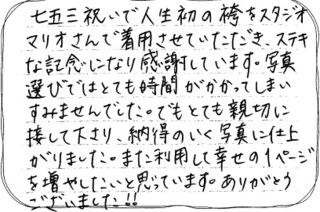 七五三祝いで人生初の袴をスタジオ
マリオさんで着用させていただき、ステキ
な記念になり感謝しています。写真
選びではとても時間がかかってしまい
すみませんでした。でもとても親切に
接して下さり、納得のいく写真に仕上
がりました。また利用して幸せの1ページ
を増やしたいと思っています。ありがとう
ございました!!